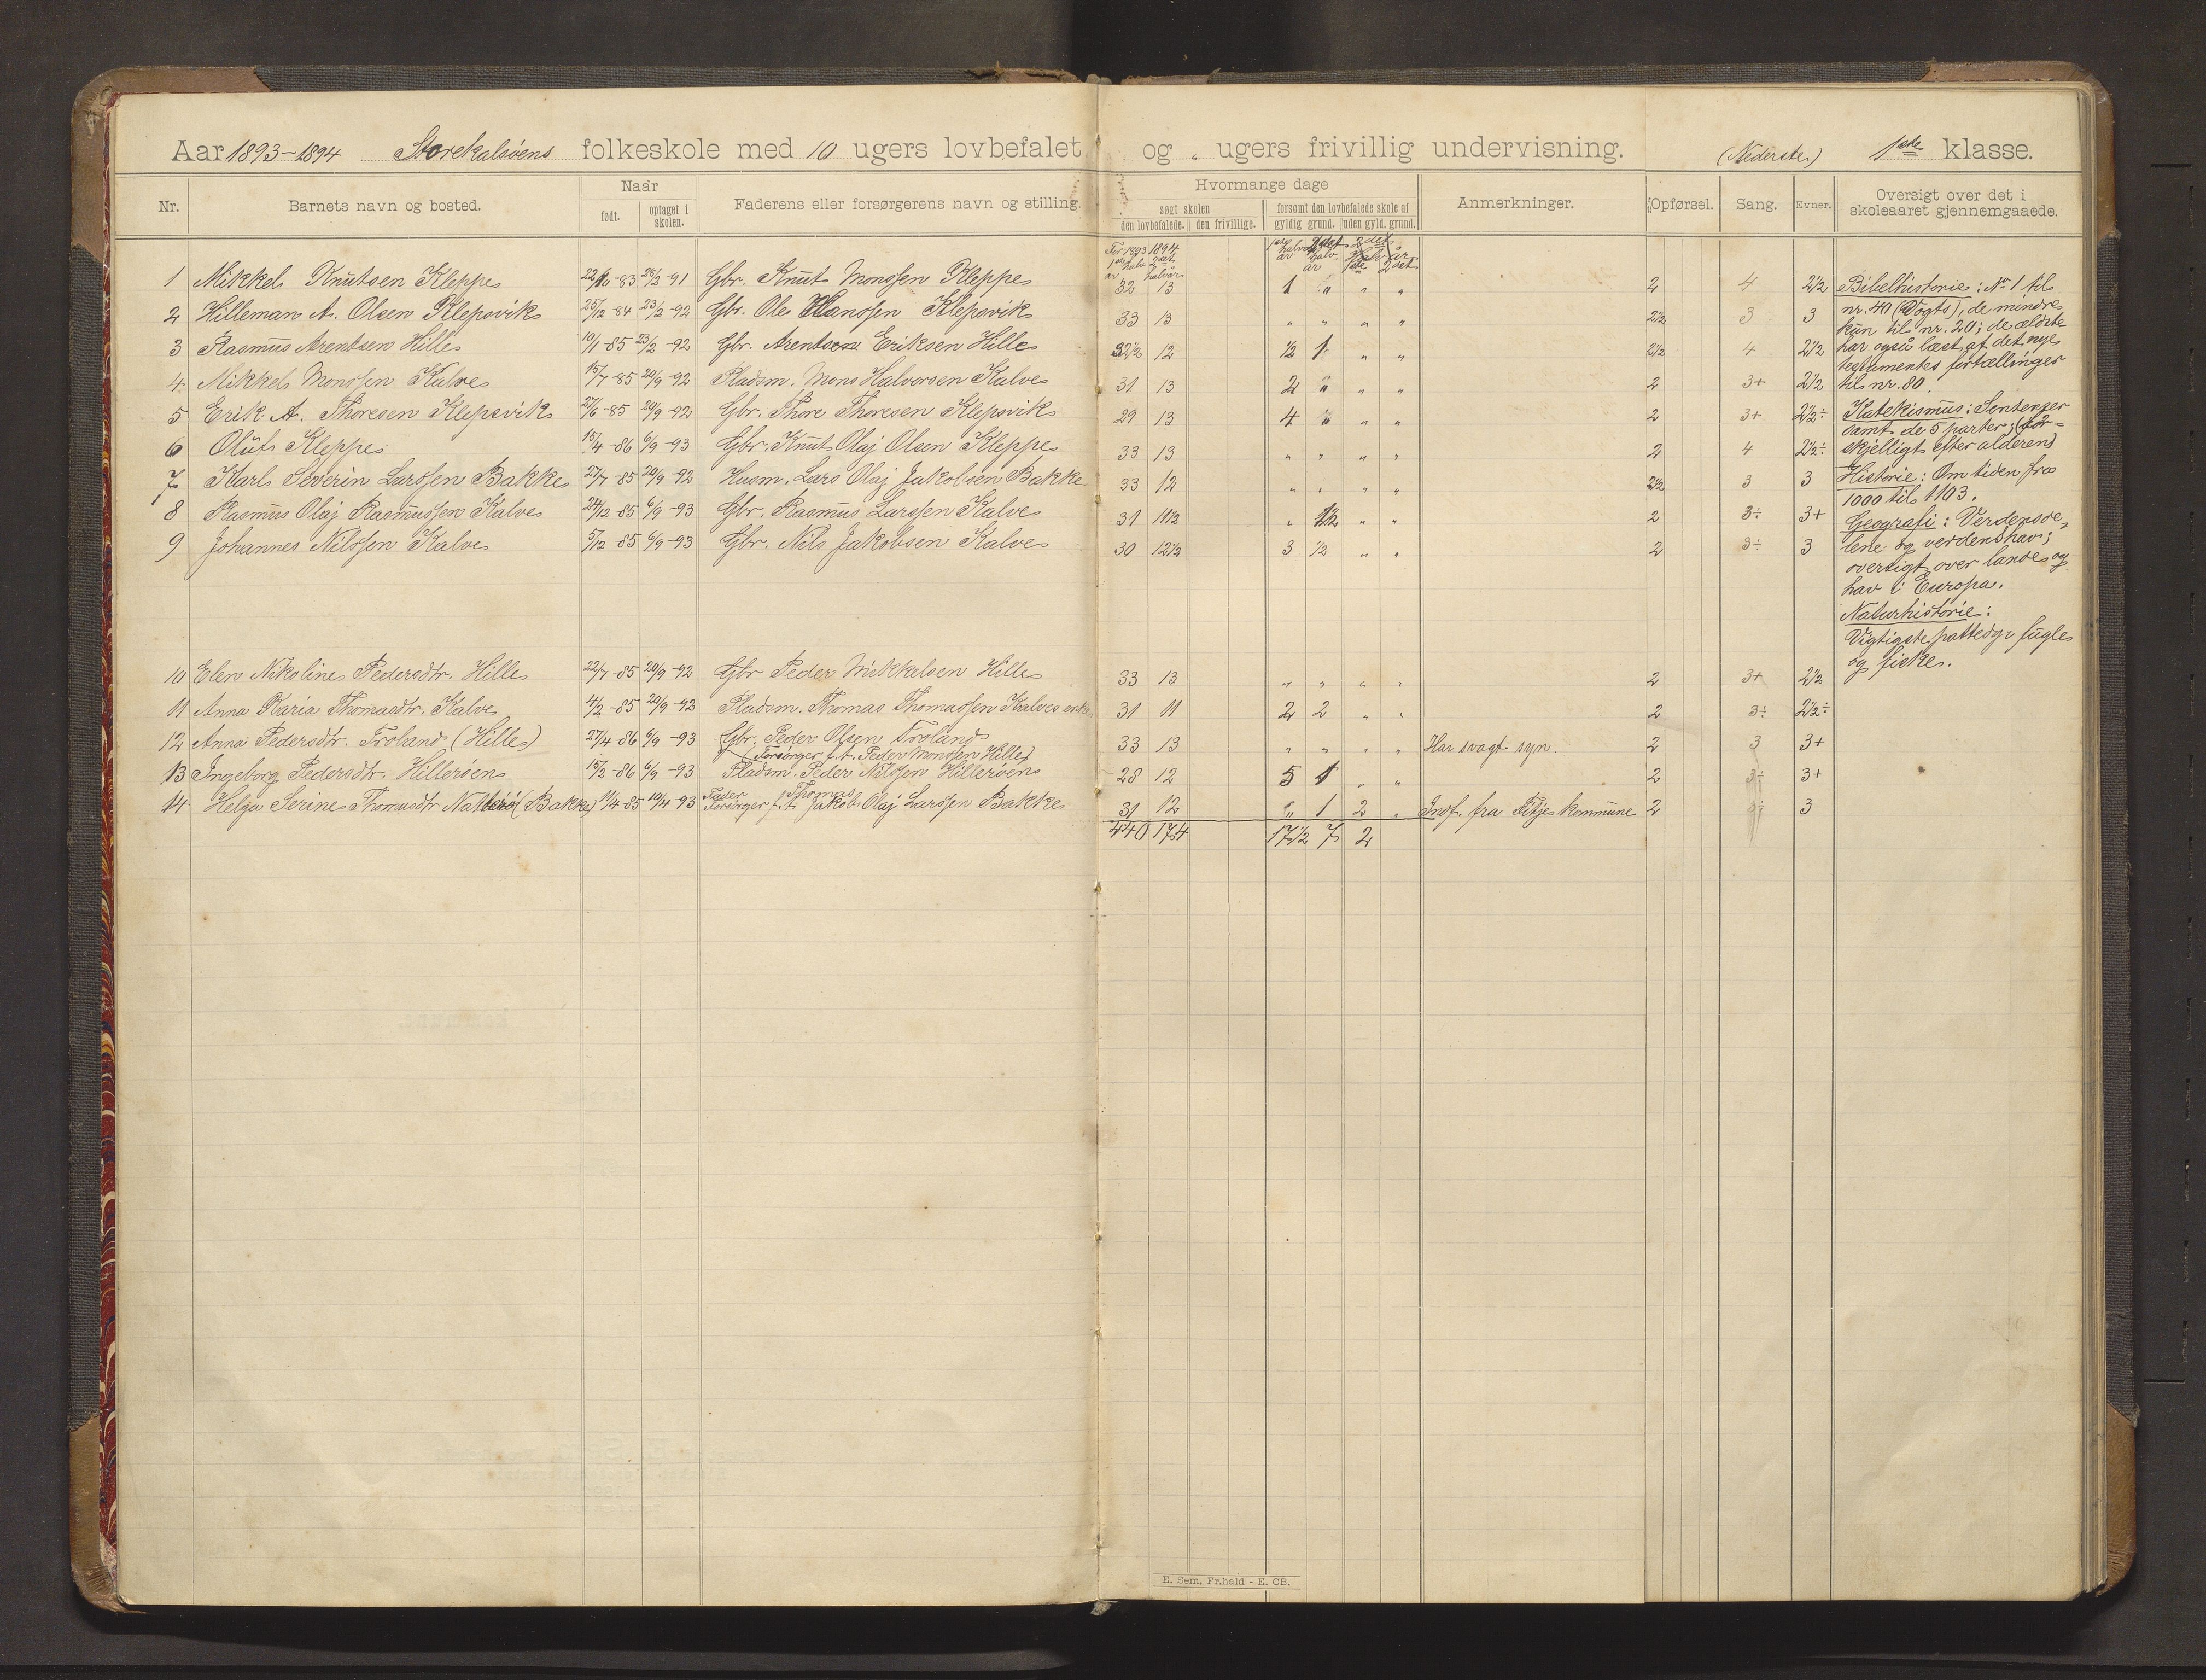 Aar 1893-1894 Storekalsøens folkeskole med 10 ugers lovbefalet og „ ugers frivillig undervisning. (Nederste) 1ste klasse.
Nr. Barnets navn og bosted. Naar født. optaget i skolen. Faderens eller forsørgerens navn og stilling. Hvormange dage søgt skolen den lovbefalede. den frivillige. forsømt den lovbefalede skole af gyldig grund. uden gyld. grund. Anmerkninger. Opførsel. Sang. Evner. Oversigt over det i skoleaaret gjennemgaaede.
1 Mikkel Knutsen Kleppe 22/10-83 28/2-91 Gbr. Knut Monssen Kleppe 32 13 1 „ „ „ 2 4 2½
2 Hilleman A. Olsen Klepsvik 25/12-84 23/2-92 Gbr. Ole Hanssen Klepsvik 33 13 „ „ „ „ 2½ 3 3
3 Rasmus Arentsen Hille 10/1-85 23/2-92 Gbr. Arentsen Eriksen Hille 32½ 12 ½ 1 „ „ 2½ 4 2½
4 Mikkel Monssen Kalve 15/7-85 20/9-92 Pladsm. Mons Halvorsen Kalve 31 13 2 „ „ „ 2 3+ 2½
5 Erik A. Thoresen Klepsvik 27/6-85 20/9-92 Gbr. Thore Thoresen Klepsvik 29 13 4 „ „ „ 2 3+ 2½÷
6 Oluf Kleppe 15/4-86 6/9-93 Gbr. Knut Olaj Olsen Kleppe 33 13 „ „ „ „ 2 4 2½÷
7 Karl Severin Larssen Bakke 27/7-85 20/9-92 Husm. Lars Olaj Jakobsen Bakke 33 12 „ „ „ „ 2½ 3 3
8 Rasmus Olaj Rasmussen Kalve 24/12-85 6/9-93 Gbr. Rasmus Larssen Kalve 31 11½ „ 1½ „ „ 2 3÷ 3+
9 Johannes Nilssen Kalve 5/12-85 6/9-93 Gbr. Nils Jakobsen Kalve 30 12½ 3 ½ „ „ 2 3÷ 3
10 Elen Nikoline Pedersdtr. Hille 22/7-85 20/9-92 Gbr Peder Mikkelsen Hille 33 13 „ „ „ „ 2 3+ 2½
11 Anna Karia Thomasdtr. Kalve 4/2-85 20/9-92 Pladsm. Thomas Thomassen Kalves enke 31 11 2 2 „ „ 2 3÷ 2½÷
12 Anna Pedersdtr. Troland (Hille) 27/4-86 6/9-93 Gbr. Peder Olsen Troland 33 13 „ „ „ „ Har svagt syn. 2 3 3+
(Forsørger f.t. Peder Monssen Hille)
13 Ingeborg Pedersdtr. Hillerøen 15/2-86 6/9-93 Pladsm. Peder Nilssen Hillerøen 28 12 5 1 „ „ 2 3÷ 3+
14 Helga Serine Thomasdtr (Bakke) 11/4-85 10/4-93 Fader Thomas
Forsørger f.t. Jakob Olaj Larssen Bakke 31 12 „ 1 2 „ Indf. fra Fitje kommune 2 3
440 174 17½ 7 2
Bibelhistorie: Nr 1 til
nr. 40 (Vogts), de mindre
kun til nr. 20; de ældste
har også læst af det nye
testamentes fortællinger
til nr. 80.
Katekismus: Sentenser
samt de 5 parter; (for-
skjelligt efter alderen)
Historie: Om tiden fra
1000 til 1103.
Geografi: Verdensde-
lene og verdenshav;
oversigt over lande og
hav i Europa.
Naturhistorie:
Vigtigste pattedyr fugle
og fiske.
E. Sem, Fr.hald - E. CB.